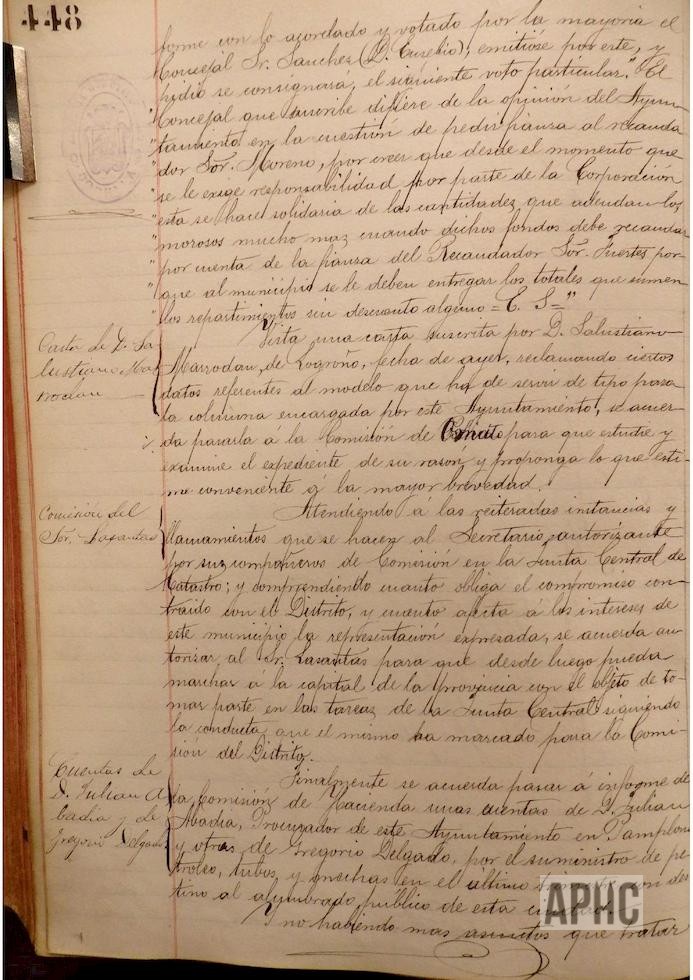 448
forme con lo acordado y votado por la mayoria el
Concejal Sr. Sanchez (D. Eusebio), emitiose por este, y
pidio se consignará, el siguiente voto particular. "El
"Concejal que suscribe difiere de la opinión del Ayun-
"tamiento en la cuestión de pedir fianza al recauda
"dor Sor. Moreno, por creer que desde el momento que
"se le exige responsabilidad por parte de la Corporacion
"esta se hace solidaria de las cantidadez que adeudan los
"morosos mucho maz cuando dichos fondos debe recaudar
"por cuenta de la fianza del Recaudador Sor. Fuertes por-
"que al municipio se le deben entregar los totales que sumen
"los repartimientos sin descuento alguno = E. S="
Carta de D. Sa
lustiano Ma
rrodan
Vista una carta suscrita por D. Salustiano
Marrodan, de Logroño, fecha de ayer, reclamando ciertos
datos referentes al modelo que ha de servir de tipo para
la columna encargada por este Ayuntamiento, se acuer-
da pasarla a la Comisión de para que estudie y
examine el expediente de su razón, y proponga lo que esti-
me conveniente á la mayor brevedad.
Comision del
Sor. Lasantas
Atendiendo á las reiteradas instancias y
llamamientos que se hacen al Secretario autorizante
por suz compañeros de Comisión en la Junta Central de
Catastro; y comprendiendo cuanto obliga el compromiso con-
traido con el Distrito, y cuanto afecta a los intereses de
este municipio la representación expresada, se acuerda au-
torizar al Sr. Lasantas para que desde luego pueda
marchar a la capital de la provincia con el objeto de to-
mar parte en las tareaz de la Junta Central siguiendo
la conducta que el mismo ha marcado para la Comi-
sión del Distrito.
Cuentas de
D. Julian A
badia y de
Gregorio Delgado
Finalmente se acuerda pasar á informe de
la Comisión de Hacienda unas cuentas de D. Julian
Abadia, Procurador de este Ayuntamiento en Pamplona
y otras de Gregorio Delgado, por el suministro de pe-
troleo, tubos, y mechas en el último con des
tino al alumbrado público de esta
Y no habiendo mas asuntos que tratar
APHC